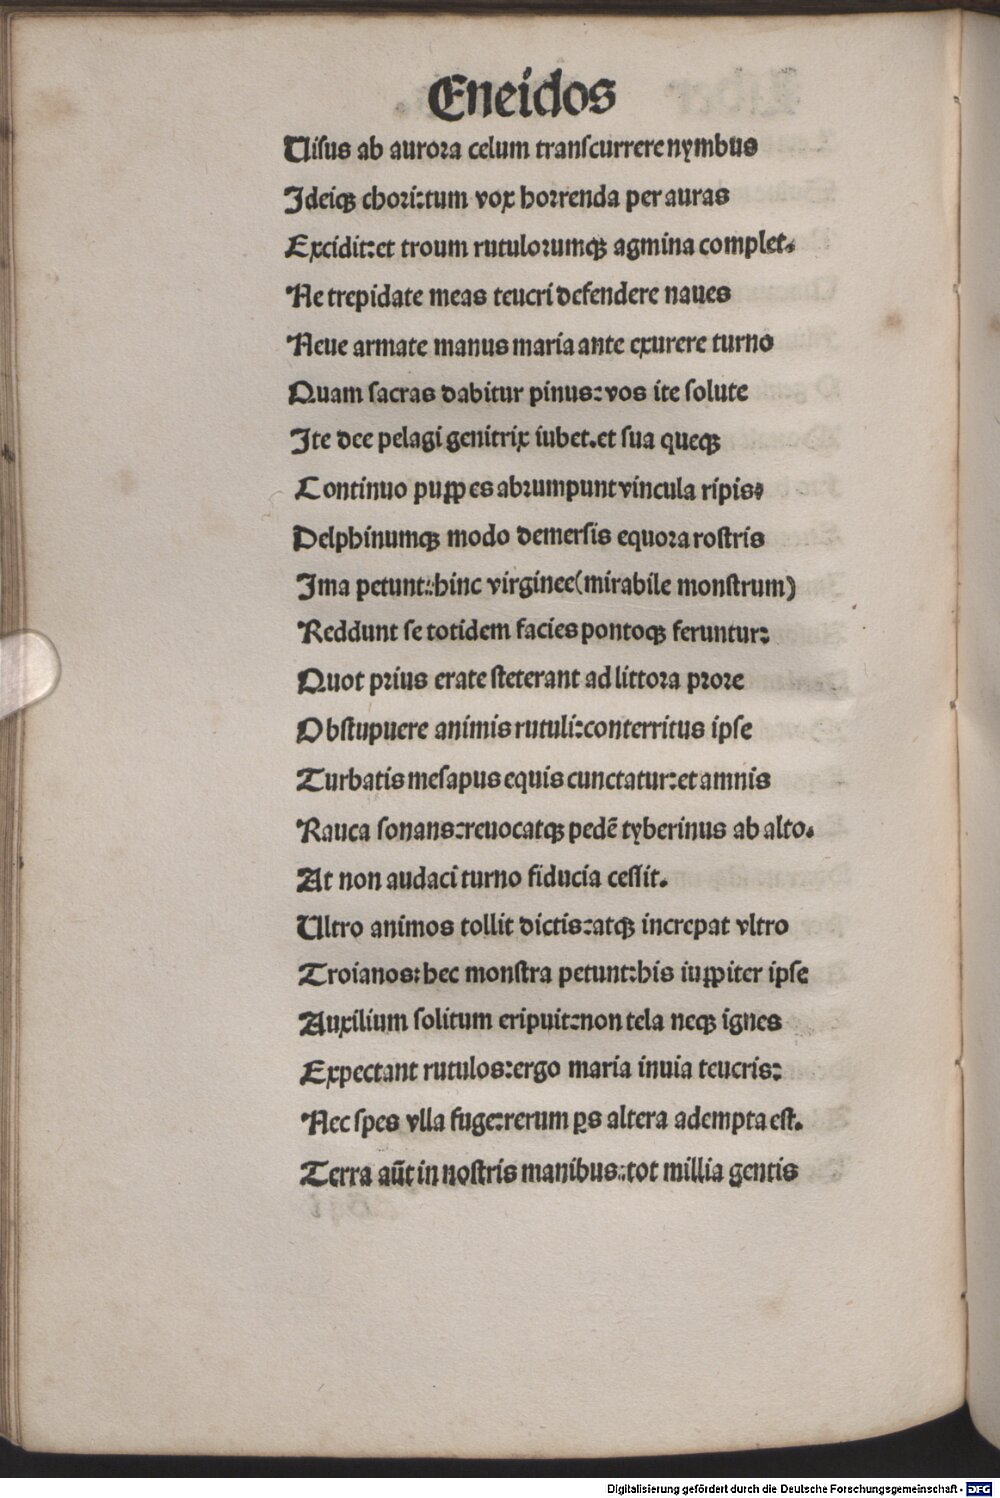 Eneidos
Uisus ab aurora celum transcurrere nymbus
Ideiqꝫ chori:tum vox horrenda per auras
Excidit:et troum rutulorumqꝫ agmina complet.
Ne trepidate meas teucri defendere naues
Neue armate manus maria ante exurere turno
Quam sacras dabitur pinus:vos ite solute
Ite dee pelagi genitrix iubet.et sua queqꝫ
Continuo puppes abrumpunt vincula ripis:
Delphinumqꝫ modo demersis equora rostris
Ima petunt:hinc virginee(mirabile monstrum)
Reddunt se totidem facies pontoqꝫ feruntur:
Quot prius erate steterant ad littora prore
Obstupuere animis rutuli:conterritus ipse
Turbatis mesapus equis cunctatur:et amnis
Rauca sonans:reuocatqꝫ pedē tyberinus ab alto.
At non audaci turno fiducia cessit.
Ultro animos tollit dictis:atqꝫ increpat vltro
Troianos:hec monstra petunt:his iuppiter ipse
Auxilium solitum eripuit:non tela neqꝫ ignes
Expectant rutulos:ergo maria inuia teucris:
Nec spes vlla fuge:rerum ꝑs altera adempta est.
Terra aūt in nostris manibus:tot millia gentis
Digitalisierung gefördert durch die Deutsche Forschungsgemeinschaft - DFG